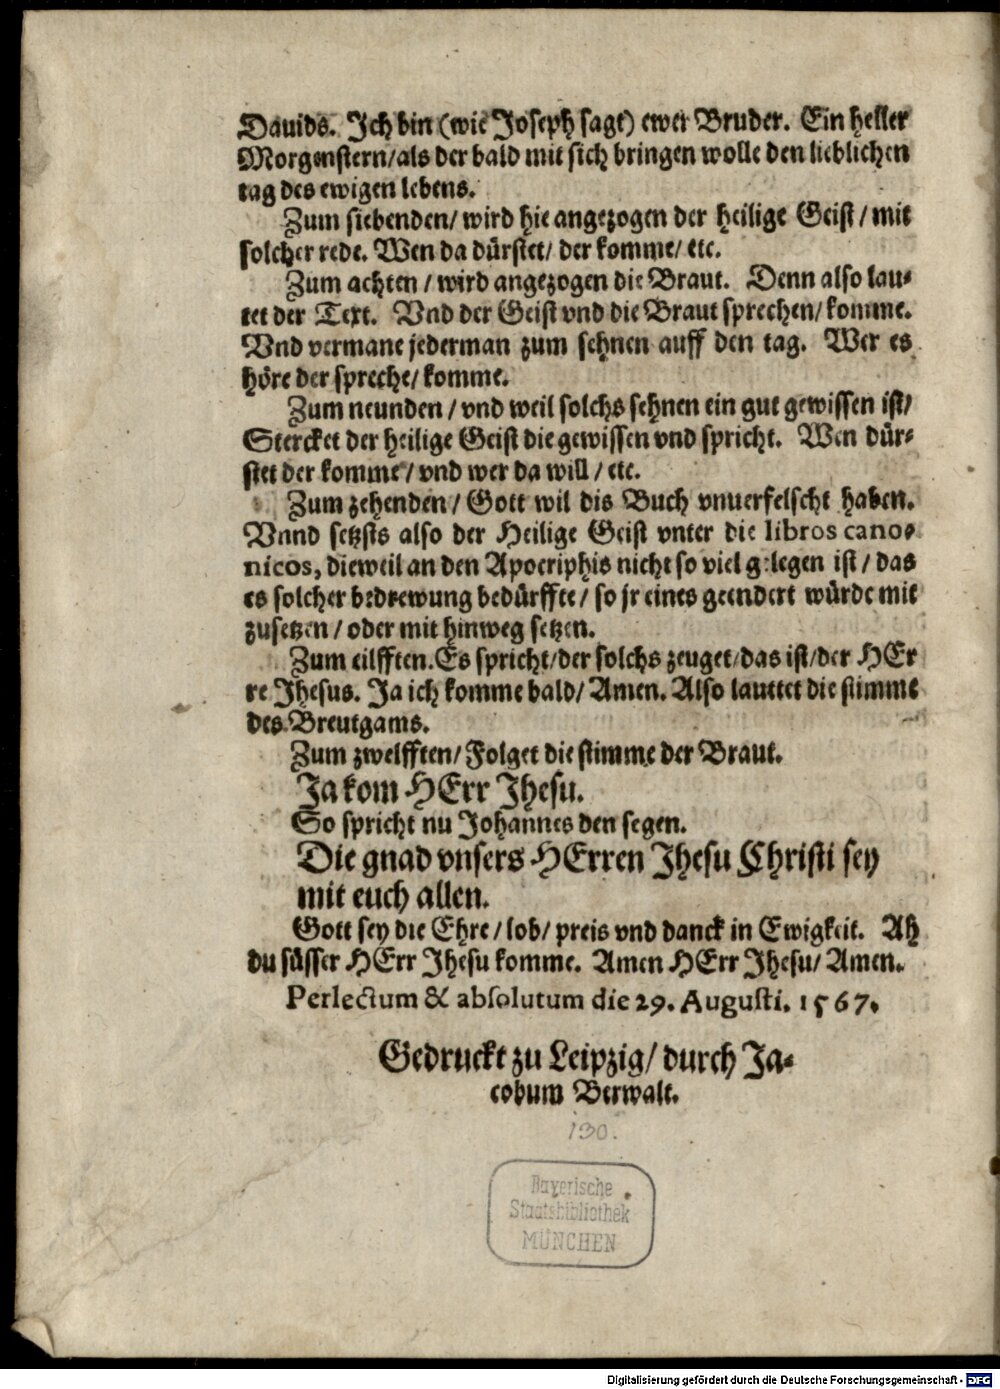 Dauids. Ich bin (wie Joseph sagt) ewer Bruder. Ein heller
Morgenstern/ als der bald mit sich bringen wolle den lieblichen
tag des ewigen lebens.
Zum siebenden/ wird hie angezogen der heilige Geist / mit
solcher rede. Wen da dürstet/ der komme/ etc.
Zum achten / wird angezogen die Braut. Denn also lau⸗
tet der Text. Vnd der Geist vnd die Braut sprechen/ komme.
Vnd vermane jederman zum sehnen auff den tag. Wer es
höre der spreche/ komme.
Zum neunden / vnd weil solchs sehnen ein gut gewissen ist/
Stercket der heilige Geist die gewissen vnd spricht. Wen dür⸗
stet der komme / vnd wer da will / etc.
Zum zehenden / Gott wil dis Buch vnuerfelscht haben.
Vnnd setzts also der Heilige Geist vnter die libros cano⸗
nicos, dieweil an den Apocriphis nicht so viel gelegen ist / das
es solcher bedrewung bedürffte / so jr eines geendert würde mit
zusetzen / oder mit hinweg setzen.
Zum eilfften. Es spricht/ der solchs zeuget/ das ist/ der HEr
re Jhesus. Ja ich komme bald/ Amen. Also lauttet die stimme
des Breutgams.
Zum zwelfften/ Folget die stimme der Braut.
Ja kom HErr Jhesu.
So spricht nu Johannes den segen.
Die gnad vnsers HErren Jhesu Christi sey
mit euch allen.
Gott sey die Ehre / lob/ preis vnd danck in Ewigkeit. Ah
du süsser HErr Jhesu komme. Amen HErr Jhesu/ Amen.
Perlectum & absolutum die 29. Augusti. 1567.
Gedruckt zu Leipzig/ durch Ja⸗
cobum Berwalt.
130.
Bayerische
Staatsbibliothek
MÜNCHEN
Digitalisierung gefördert durch die Deutsche Forschungsgemeinschaft - DFG